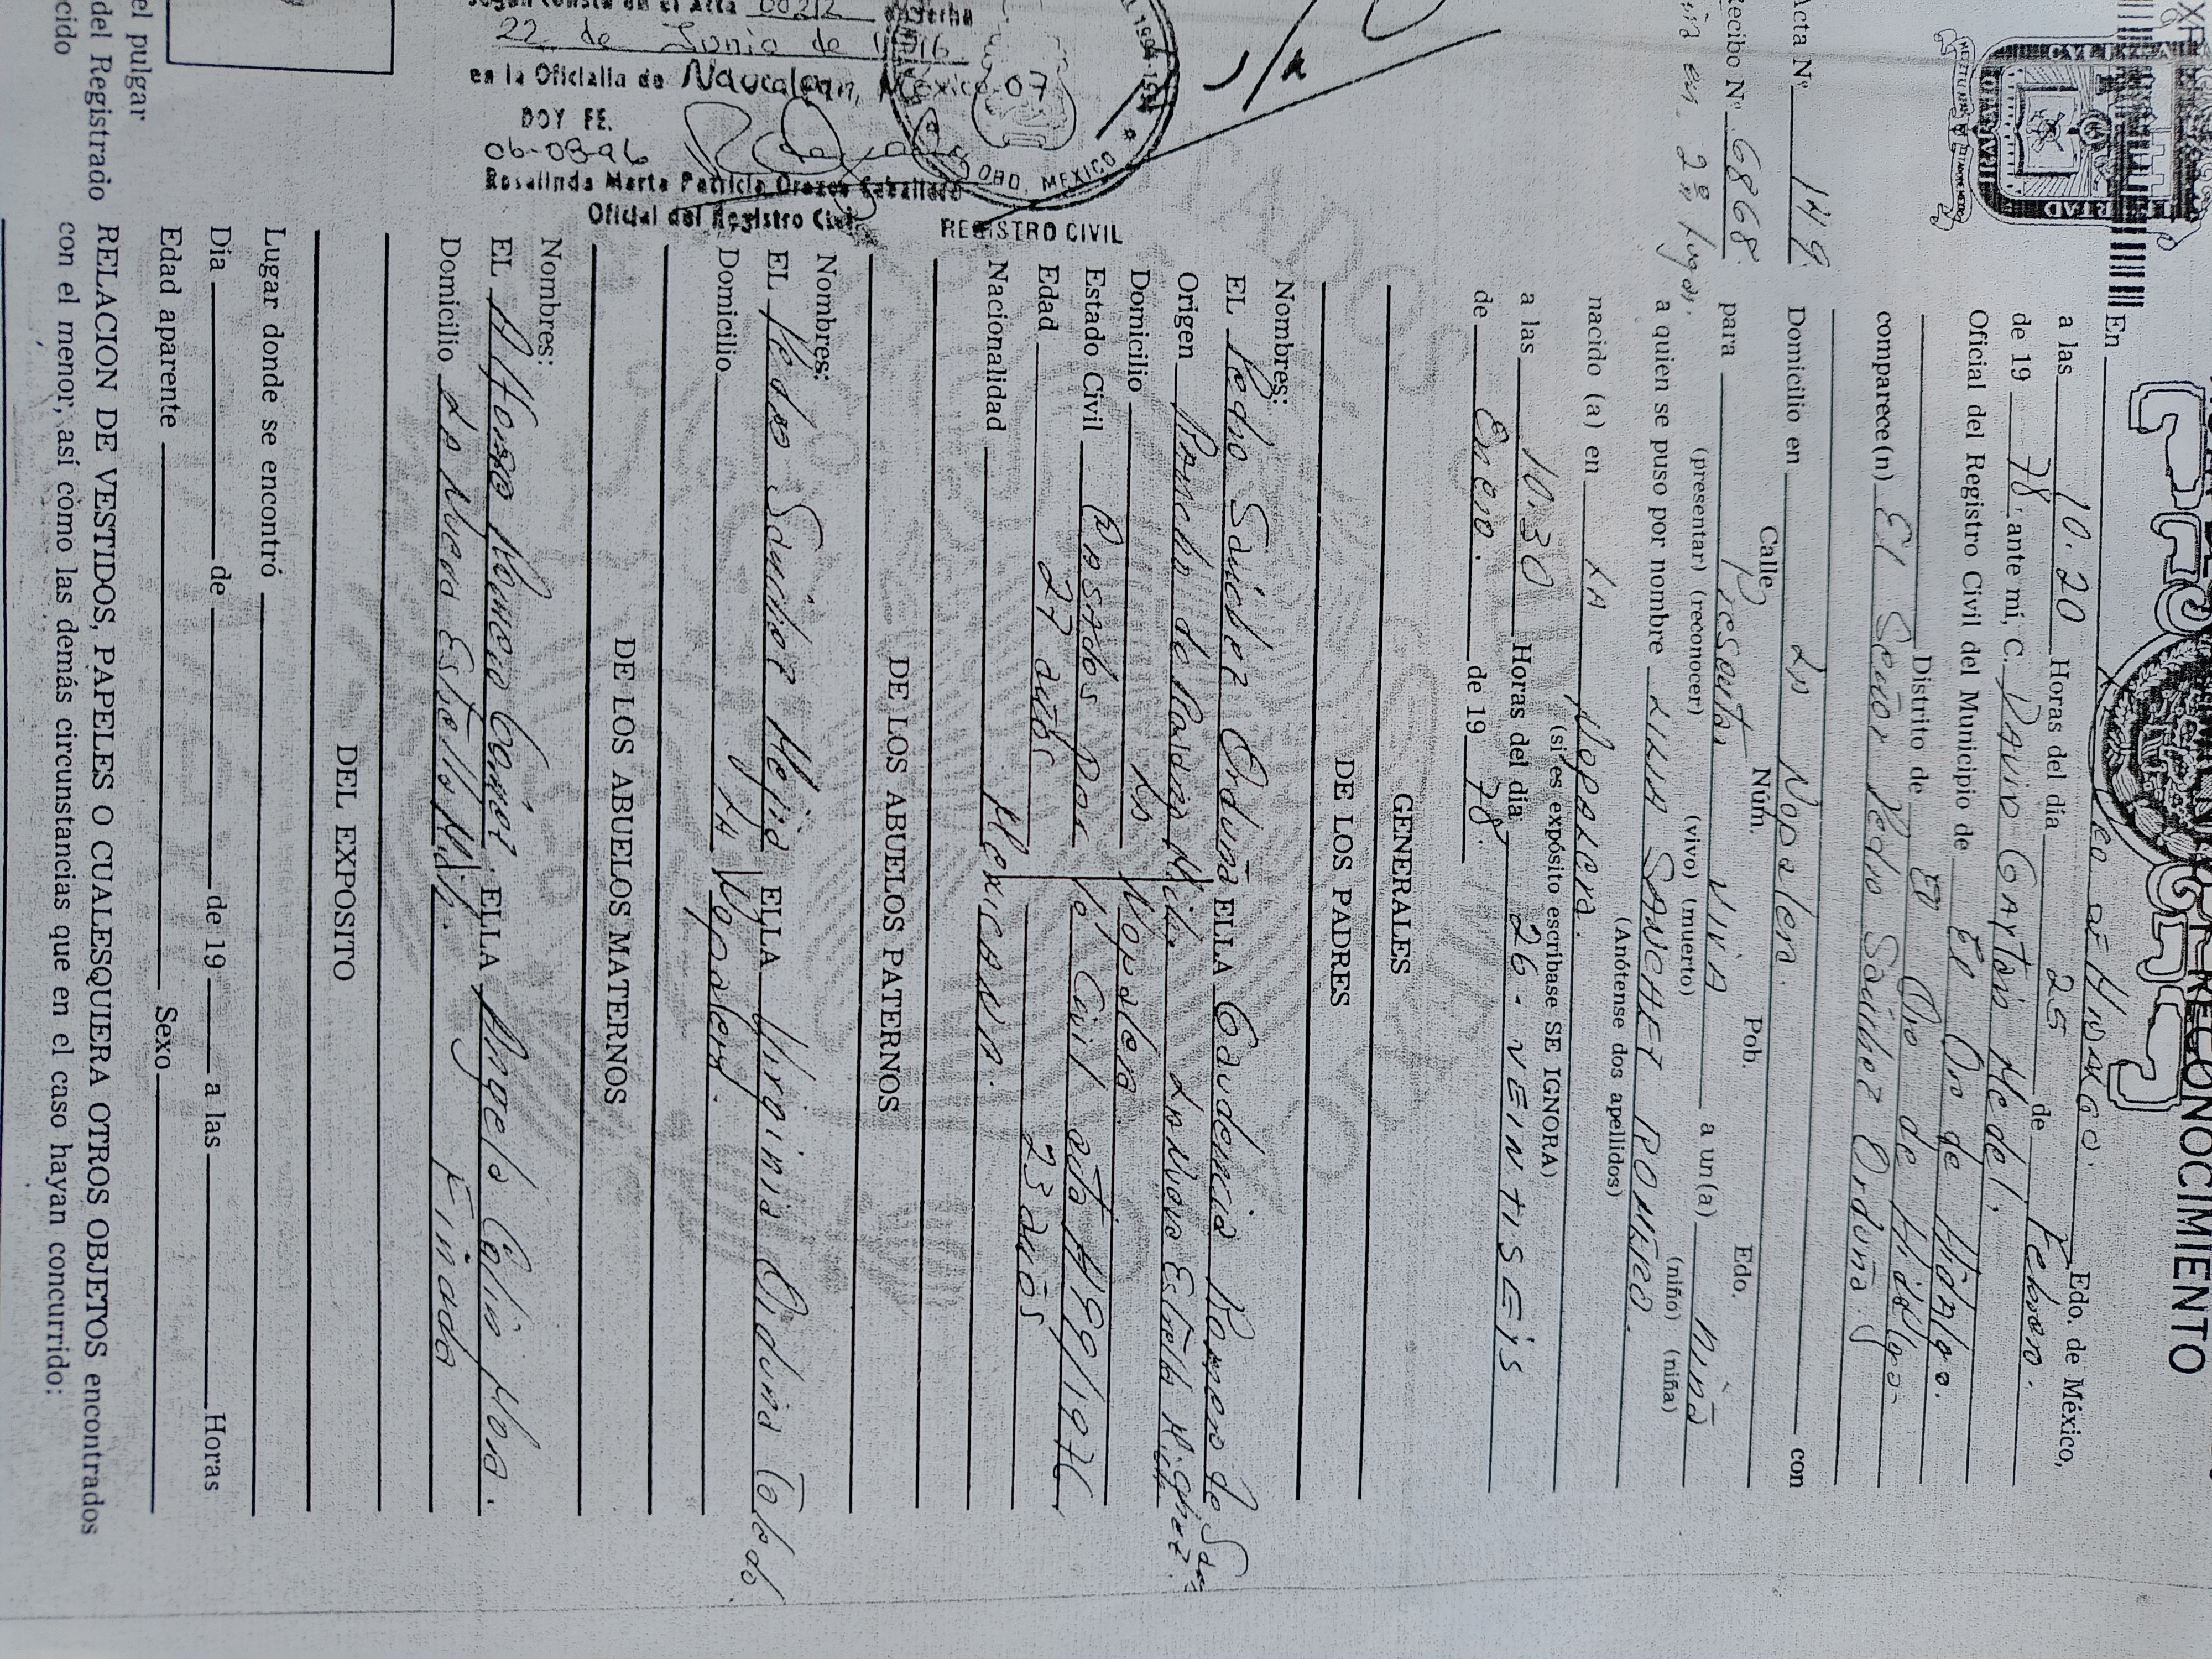 RECONOCIMIENTO
En EO DE HIDALGO. Edo. de México,
a las 10.20 Horas del día 25 de Febrero.
de 19 78. ante mí, C. DAVID GAytán Medel,
Oficial del Registro Civil del Municipio de El Oro de Hidalgo.
Distrito de El Oro de Hidalgo.
comparece(n) El Señor Pedro Sánchez Orduña.
Acta Nº 149
Domicilio en La Nopalera. con
Calle Núm. Pob. Edo.
Recibo Nº 6868
para Presentar VIVA a un(a) niña
(presentar) (reconocer) (vivo) (muerto) (niño) (niña)
en 2º lugar.
a quien se puso por nombre SANCHEZ ROMERO.
(Anótense dos apelidos)
nacido (a) en LA Nopalera.
(si es expósito escríbase SE IGNORA)
a las 10.30 Horas del día 26. VEINTISEIS
de Enero. de 19 78.
GENERALES
DE LOS PADRES
Nombres:
EL Pedro Sánchez Orduña ELLA Gaudencia Romero de
Origen Rancho de Estrella
Domicilio La Nopalera
Estado Civil Casados por lo Civil acta # 199/1976
Edad 27 años 23 años
Nacionalidad MexicANA.
DE LOS ABUELOS PATERNOS
Nombres:
EL Pedro Sanchez Mejia ELLA Virginia Orduña
Domicilio LA Nopalera.
DE LOS ABUELOS MATERNOS
Nombres:
EL Romero ELLA Angela Colin
Domicilio La Nueva Estrella Mich. Finada
DEL EXPOSITO
Lugar donde se encontró
Dia de de 19 a las Horas
Edad aparente Sexo
RELACION DE VESTIDOS, PAPELES O CUALESQUIERA OTROS OBJETOS encontrados
con el menor, así cómo las demás circunstancias que en el caso hayan concurrido:
según consta en el Acta 00212 de fecha
22 de Junio de
en la Oficialía de Naucalpan, México-07
DOY FE.
06-08-96
Rosalinda Marta Patricia Orozco Caballero
Oficial del Registro Civil
ORO, MEXICO
REGISTRO CIVIL
el pulgar
del Registrado
cido
LIBERTAD